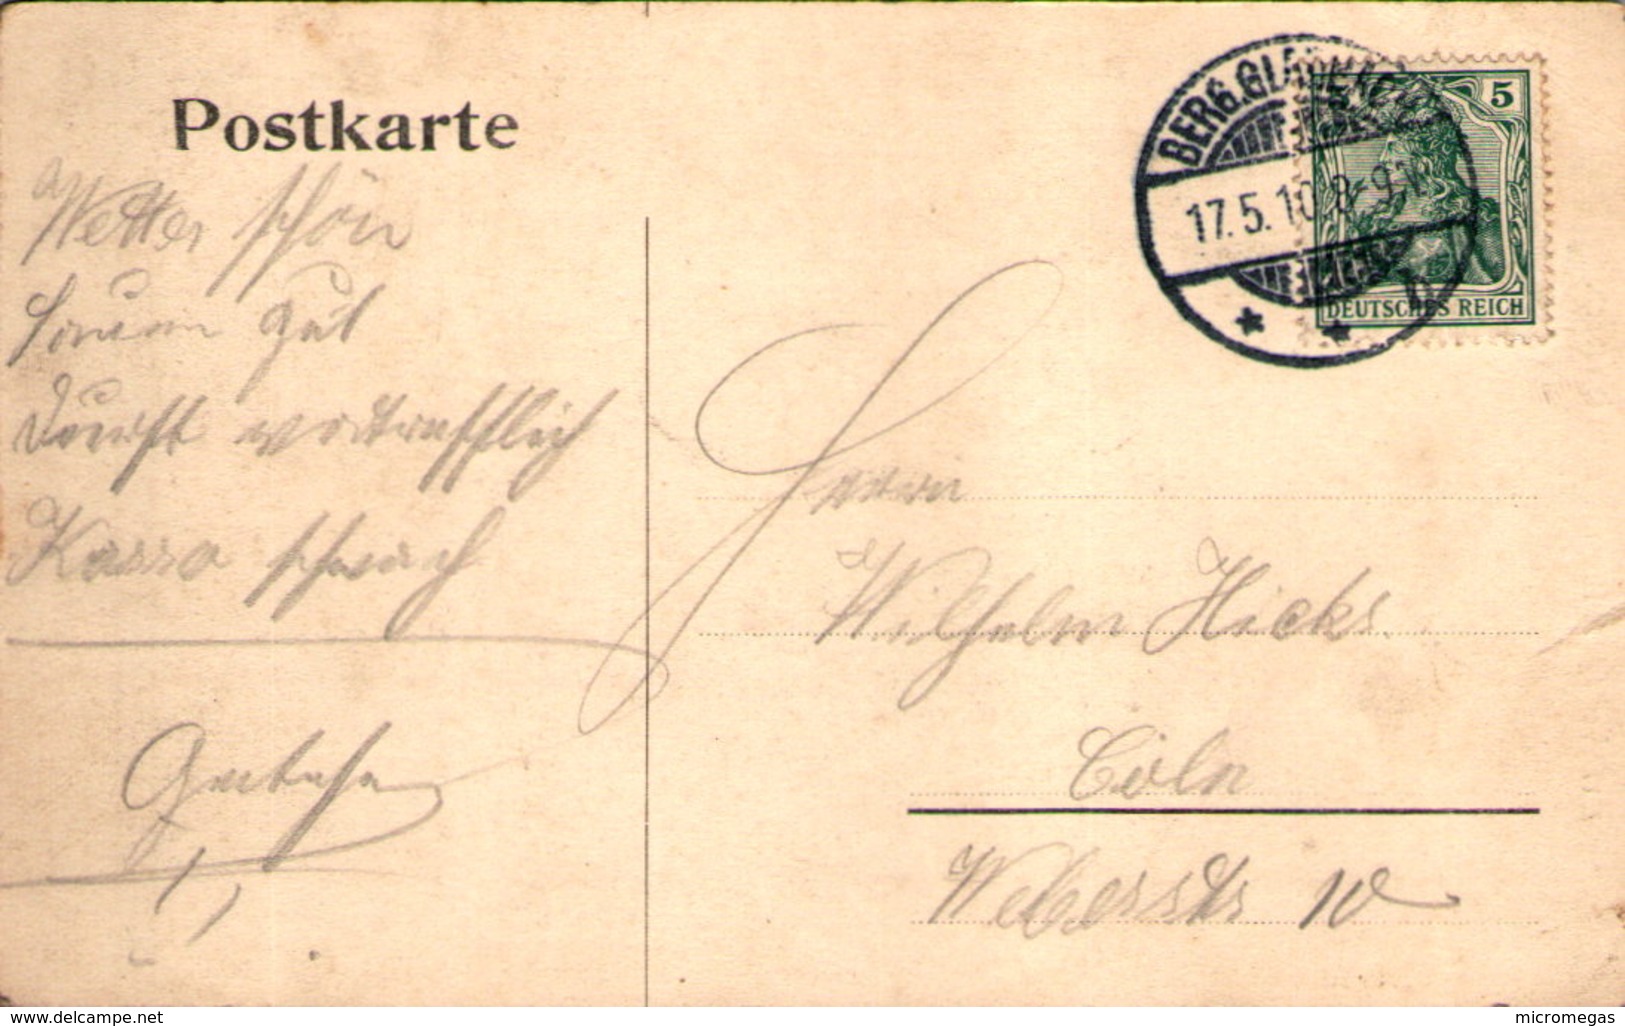 Postkarte
BERG. GLADBACH
17.5.10.8-9V.
5
DEUTSCHES REICH
Wetter schön
gut
Durst vortrefflich
Kasse schwach
Herrn
Wilhelm Hicks
Cöln
Weberstr 10
www.delcampe.net
micromegas